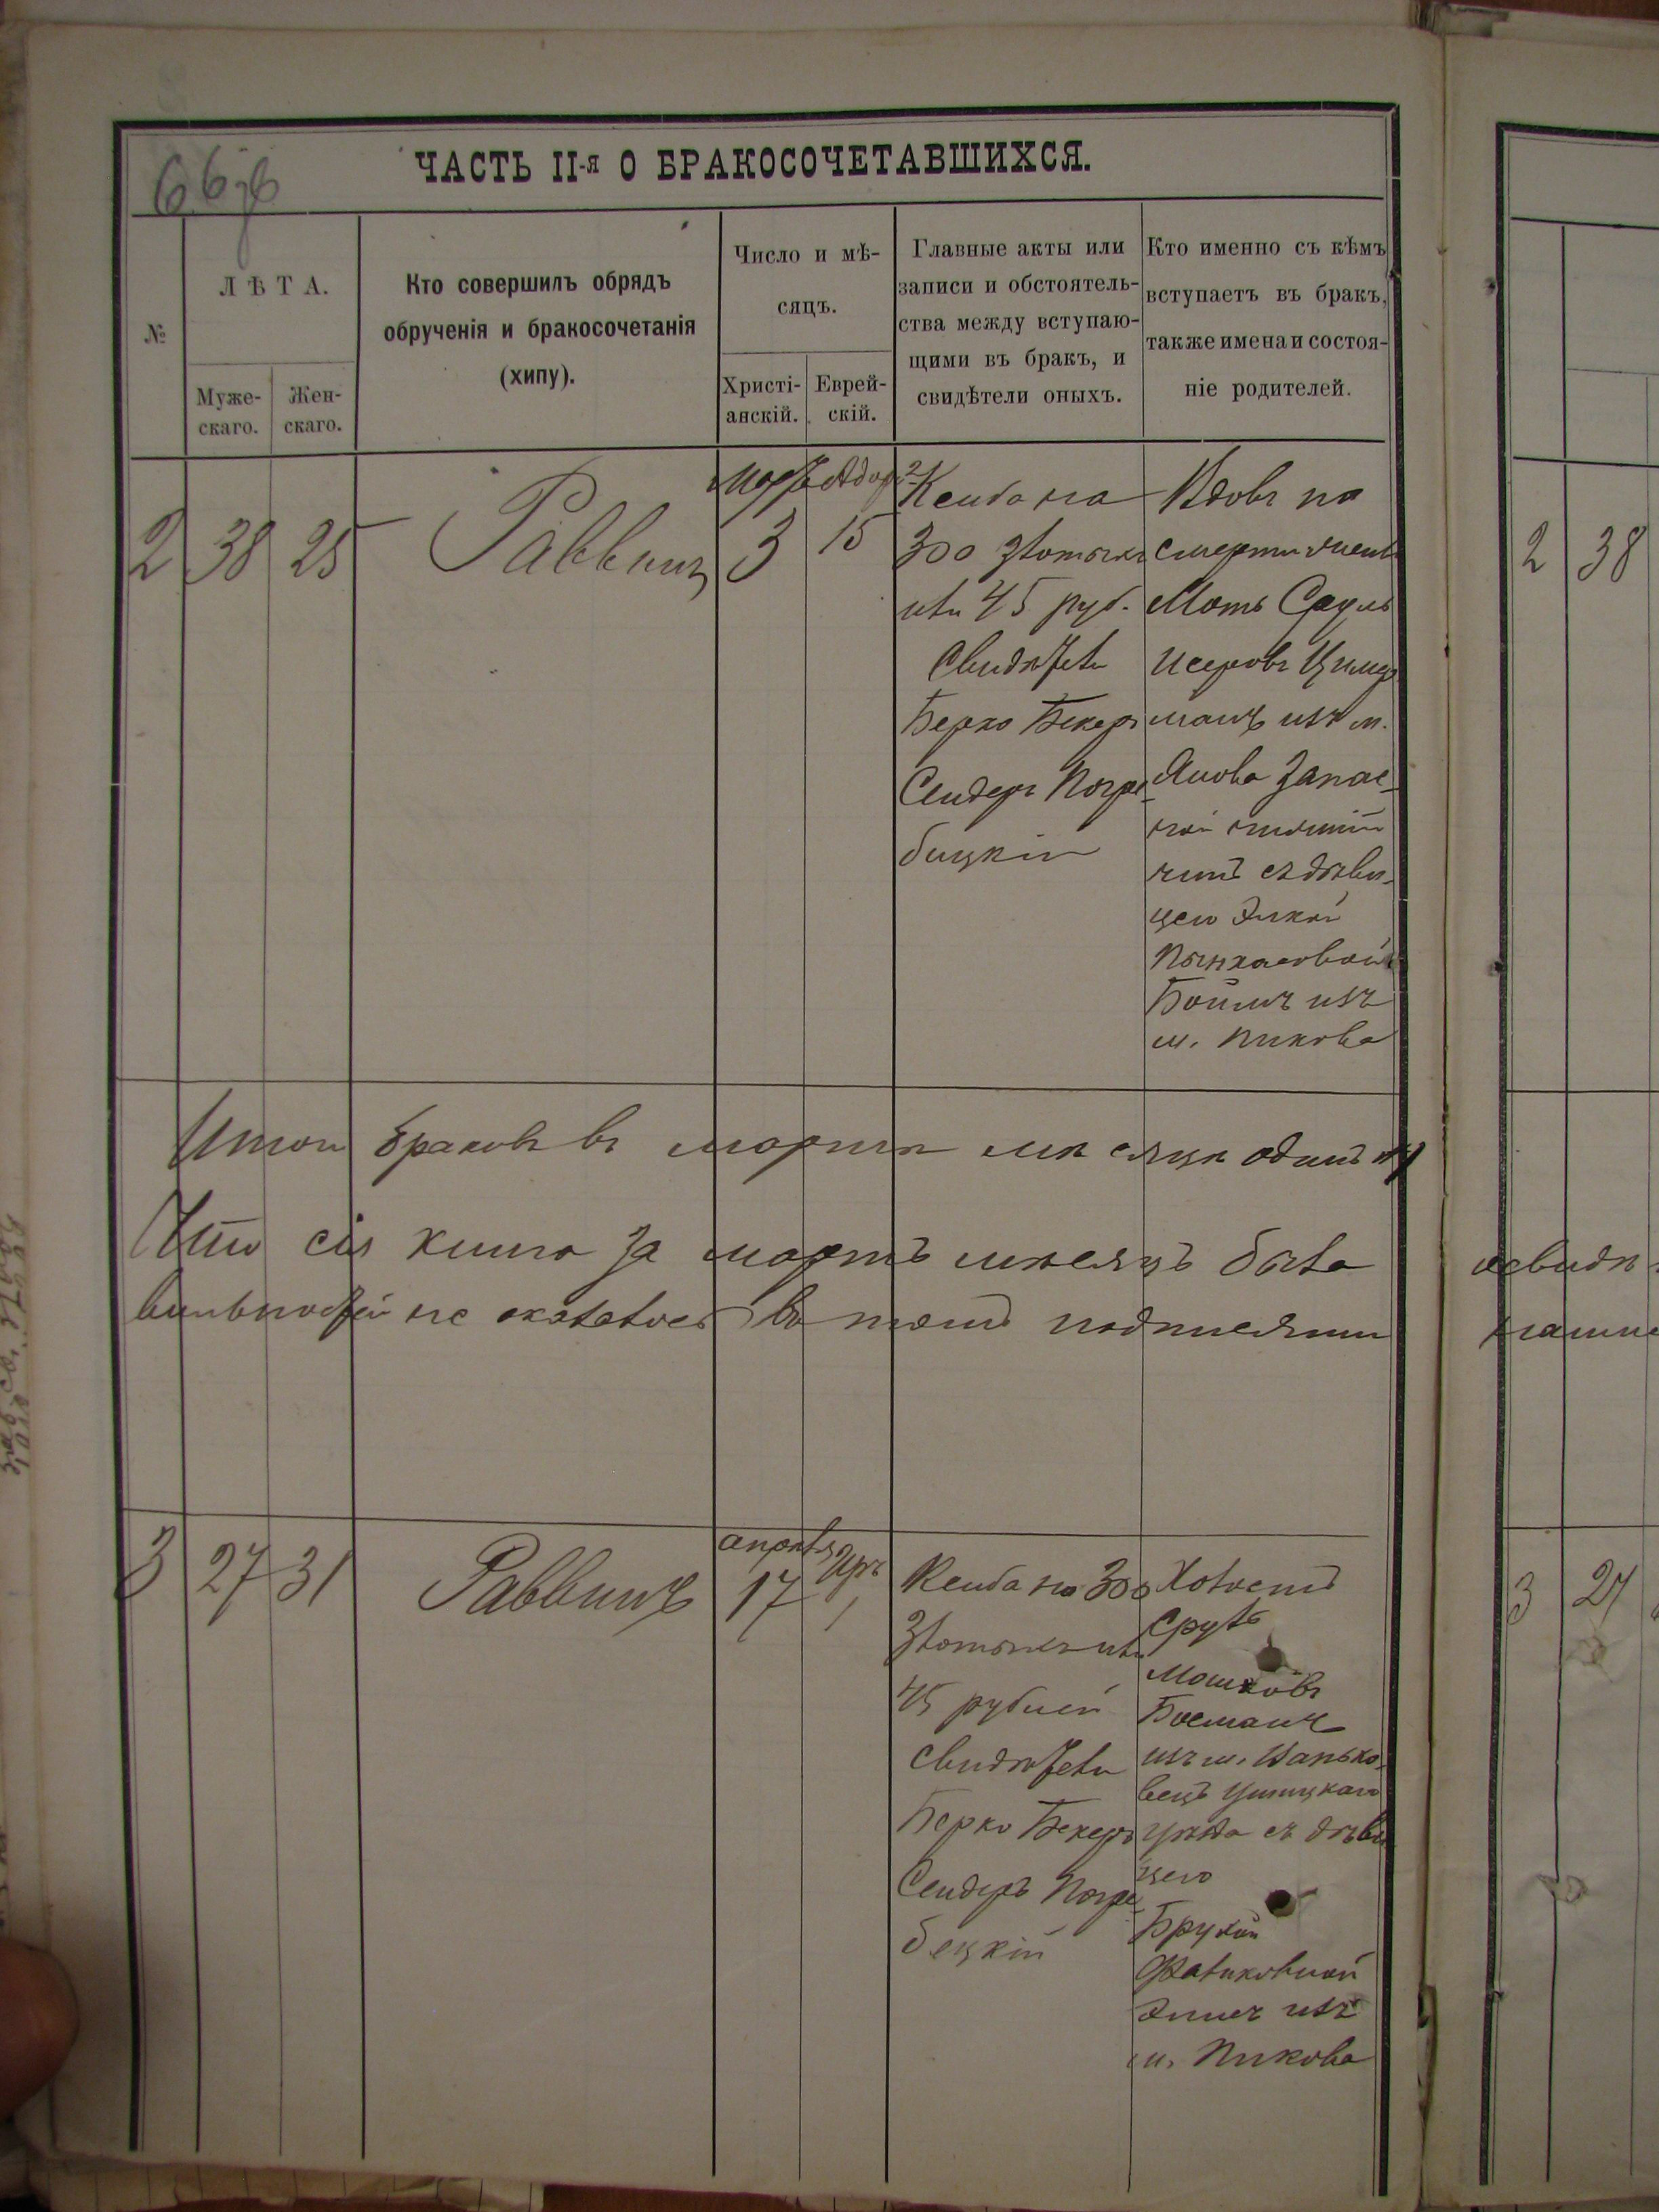 ЧАСТЬ II-я О БРАКОСОЧЕТАВШИХСЯ.
№
ЛѢТА.
Муже-
скаго.
Жен-
скаго.
Кто совершилъ обрядъ
обрученія и бракосочетанія
(хипу).
Число и мѣ-
сяцъ.
Христі-
анскій.
Еврей-
скій.
Главные акты или
записи и обстоятель-
ства между вступаю-
щими въ бракъ, и
свидѣтели оныхъ.
Кто именно съ кѣмъ
вступаетъ въ бракъ,
также имена и состоя-
ніе родителей.
2 38 25
Раввинъ
Мартъ
3
Адоръ 2
15
Кенба на
300 злотыхъ
или 45 руб.
Свидѣтели
Берко Бекеръ
Сендеръ Погре-
бицкій
Вдовъ по
смерти жены
Моть Сруль
Исеровъ
манъ изъ м.
Янова Запас-
ной нижній
чинъ съ дѣви-
цею Элкой
Пынхасовой
изъ
м. Пикова
Итого браковъ въ мартѣ мѣсяцѣ одинъ
Что сія книга за мартъ мѣсяцъ была
не оказалось въ томъ подписями
3 27 31
Раввинъ
апрѣля
17
Иръ
1
Кенба на 300
Злотыхъ или
45 рублей
Свидѣтели
Берко Бекеръ
Сендеръ Погре-
бецкій
Холостъ
Сруль
Мошковъ
изъ м. Ванько-
вецъ Ушицкаго
уѣзда съ дѣви-
цею
Брухой
изъ
м. Пикова
2 38
3 27